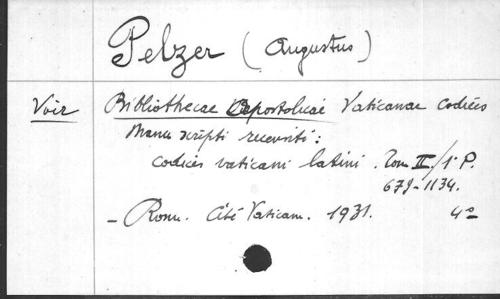 Pelzer (Augustus)
Voir Bibliothecae Apostolicae Vaticanae codices
manu scripti recensiti:
codices vaticani latini. Tom II/1ª P.
679-1134.
- Rom. Cité Vatican. 1931. 4º